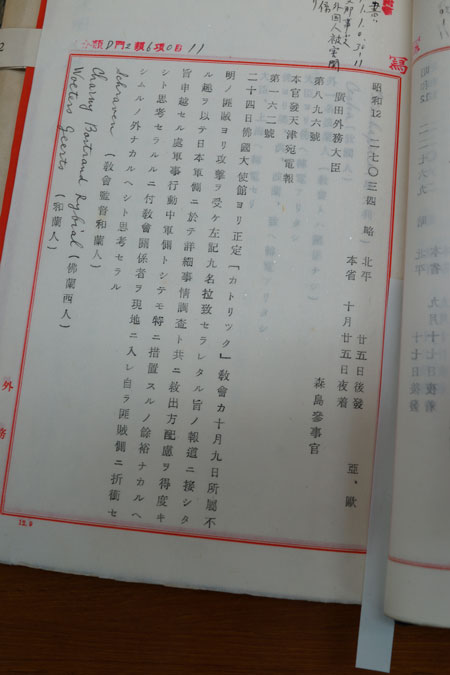 寫
分類D門2類6項0目11
昭和12 二七〇三四 略 北平 廿五日後發 亞、歐
本省 十月廿五日夜着
廣田外務大臣 森島參事官
第八九六號
本官發天津宛電報
第一六二號
二十四日佛國大使館ヨリ正定「カトリツク」教會カ十月九日所屬不
明ノ匪敵ヨリ攻擊ヲ受ケ左記九名拉致セラレタル旨ノ報道ニ接シタ
ル趣ヲ以テ日本軍側ニ於テ詳細事情調査ト共ニ救出方配慮ヲ得度キ
旨申越セル處軍事行動中軍側トシテモ特ニ措置スルノ餘裕ナカルヘ
シト思考セラルルニ付教會關係者ヲ現地ニ入レ自ラ匪賊側ニ折衝セ
シムルノ外ナカルヘシト思考セラル
Schraven (教會監督和蘭人)
Charny Bertrand Rybial (佛蘭西人)
Woeters Geerts (和蘭人)
外務
12.9